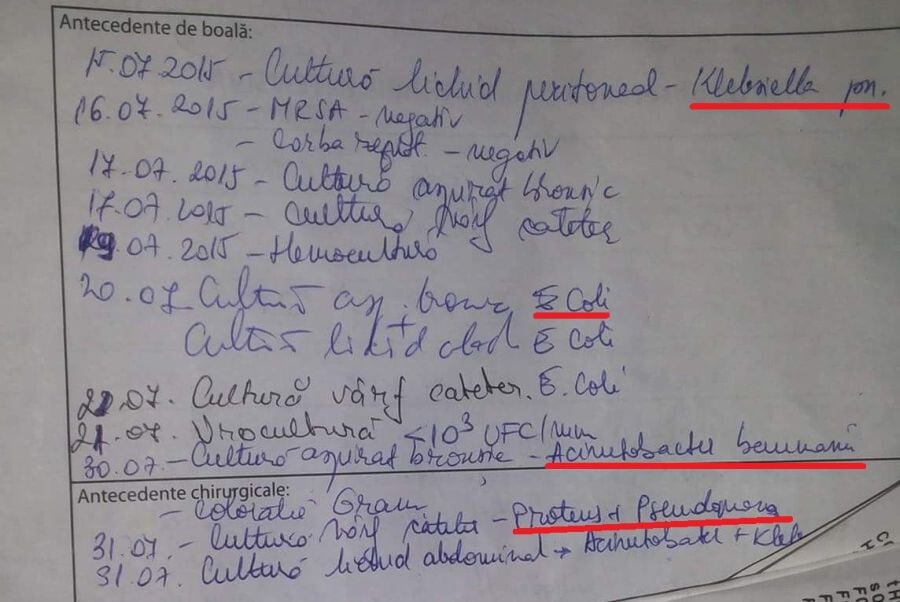 Antecedente de boală:
15.07.2015 - Cultură lichid peritoneal - Klebsiella pn.
16.07.2015 - MRSA - negativ
- negativ
17.07.2015 - Cultură aspirat bronsic
17.07.2015 - Cultură vârf cateter
19.07.2015 - Hemocultură
20.07 Cultură asp. E Coli
Cultură E Coli
21.07. Cultură vârf cateter. E. Coli
21.07. Urocultură <10³ UFC/mm
30.07. - Cultură aspirat bronsic - Acinetobacter baumanii
Antecedente chirurgicale:
- Coloratie Gram
31.07. - Cultură vârf cateter - Proteus + Pseudomona
31.07. Cultură lichid abdominal → Acinetobacter + Kleb